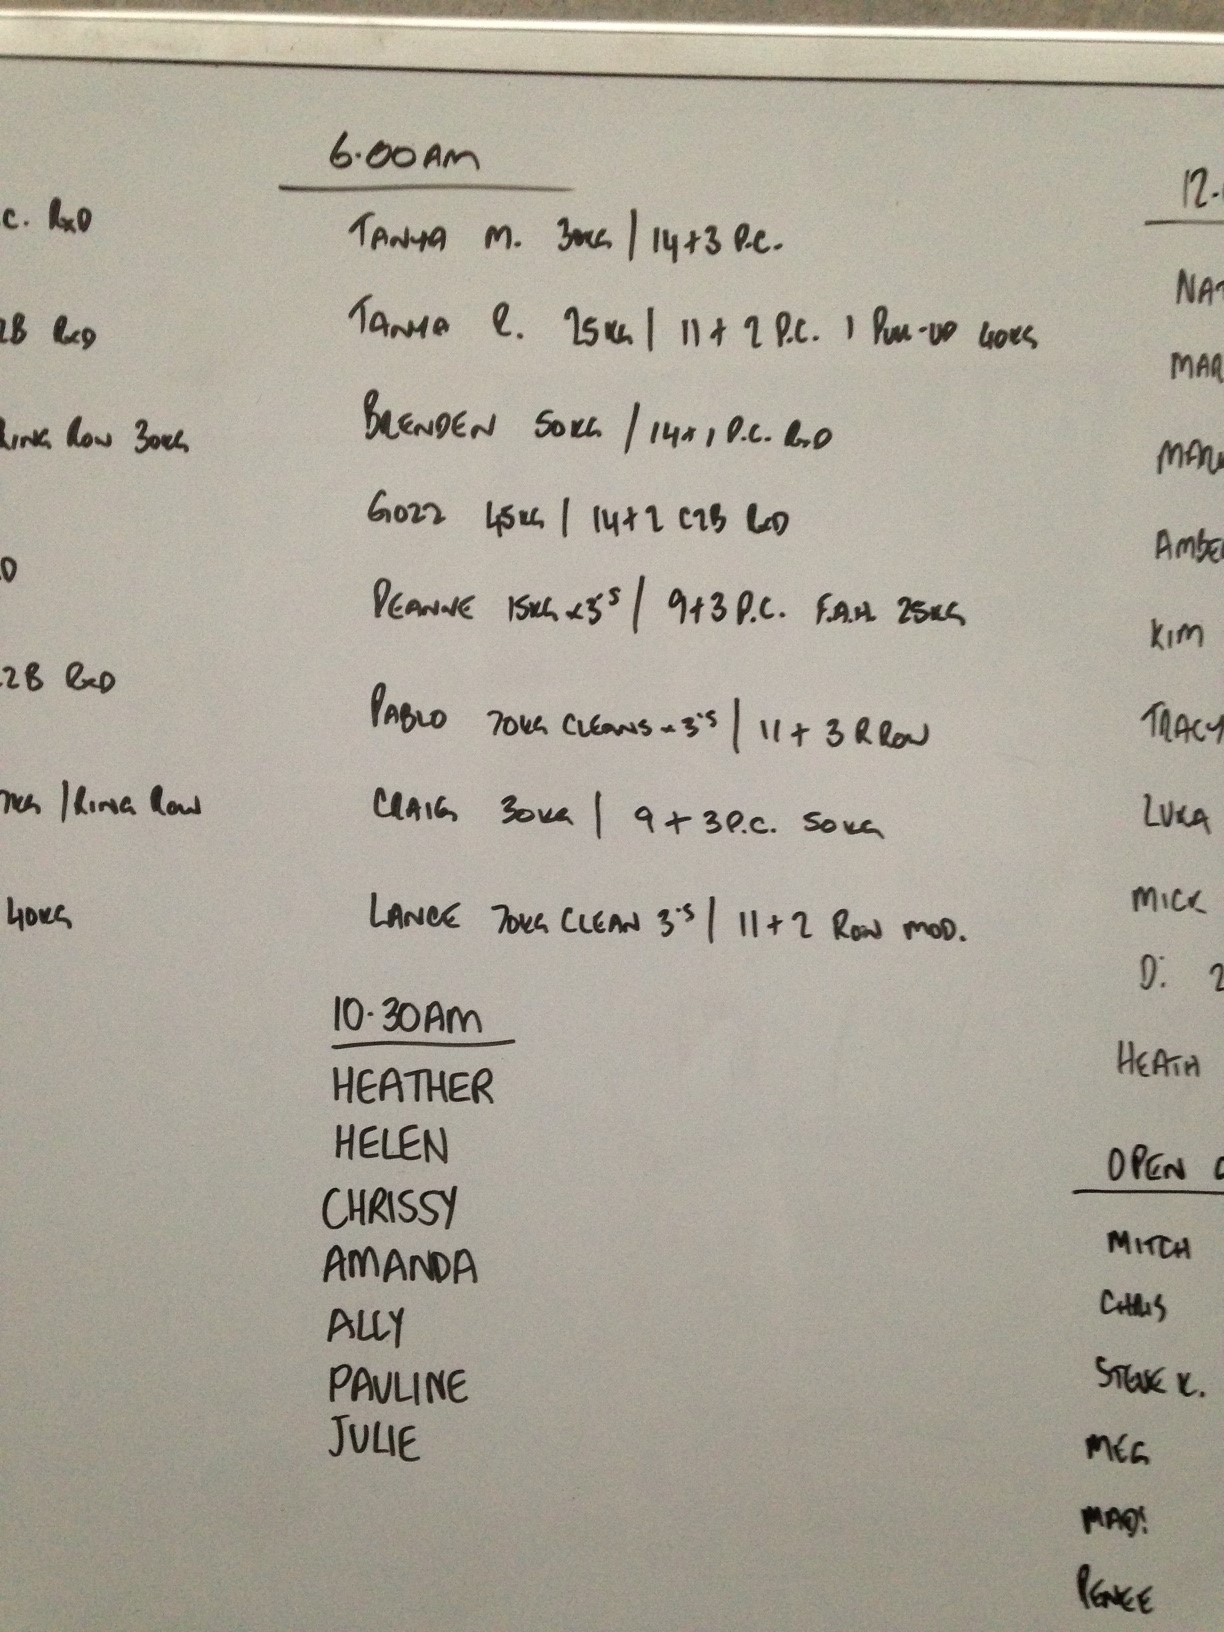 C. RxD
2B RxD
RING ROW 30KG
D
2B RxD
KG / RING ROW
40KG
6.00AM
TANYA M. 30KG | 14+3 P.C.
TANYA R. 25KG | 11 + 2 P.C. 1 PULL-UP 40KG
BRENDEN 50KG / 14+1 P.C. RxD
GOZZ 45KG | 14+2 C2B RxD
PEANNE 15KG x 3'S | 9+3 P.C. F.A.H. 25KG
PABLO 70KG CLEANS x 3'S | 11 + 3 R ROW
CRAIG 30KG | 9 + 3 P.C. 50KG
LANCE 70KG CLEAN 3'S | 11+2 ROW MOD.
10.30AM
HEATHER
HELEN
CHRISSY
AMANDA
ALLY
PAULINE
JULIE
12.
NAT
MAR
MAR
AMBE
KIM
TRACY
LUKA
MICK
D: 2
HEATH
OPEN
MITCH
CHRIS
STEVE K.
MEG
MADI
PENEE